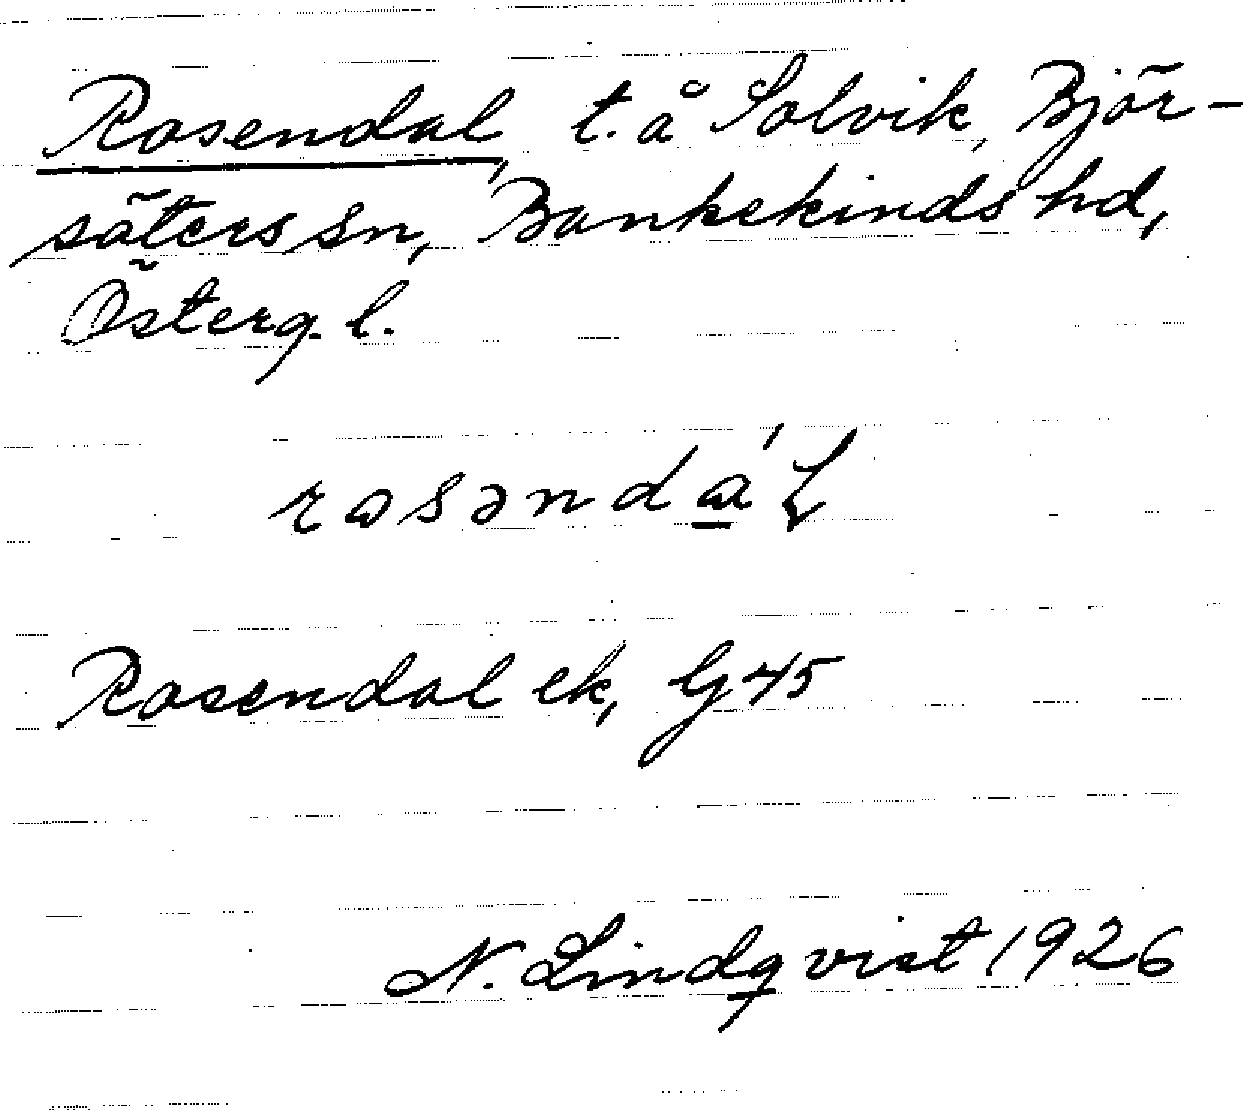 Rosendal, t. å Solvik, Björ-
säters sn, Bankekinds hd,
Österg. l.
rɷsəndáL
Rosendal ek, G 45
N. Lindqvist 1926